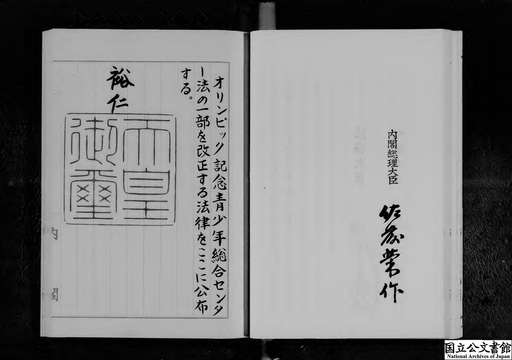 オリンピック記念青少年総合センタ
ー法の一部を改正する法律をここに公布
する。
裕仁
天皇
御璽
内閣
内閣総理大臣
佐藤栄作
国立公文書館
National Archives of Japan